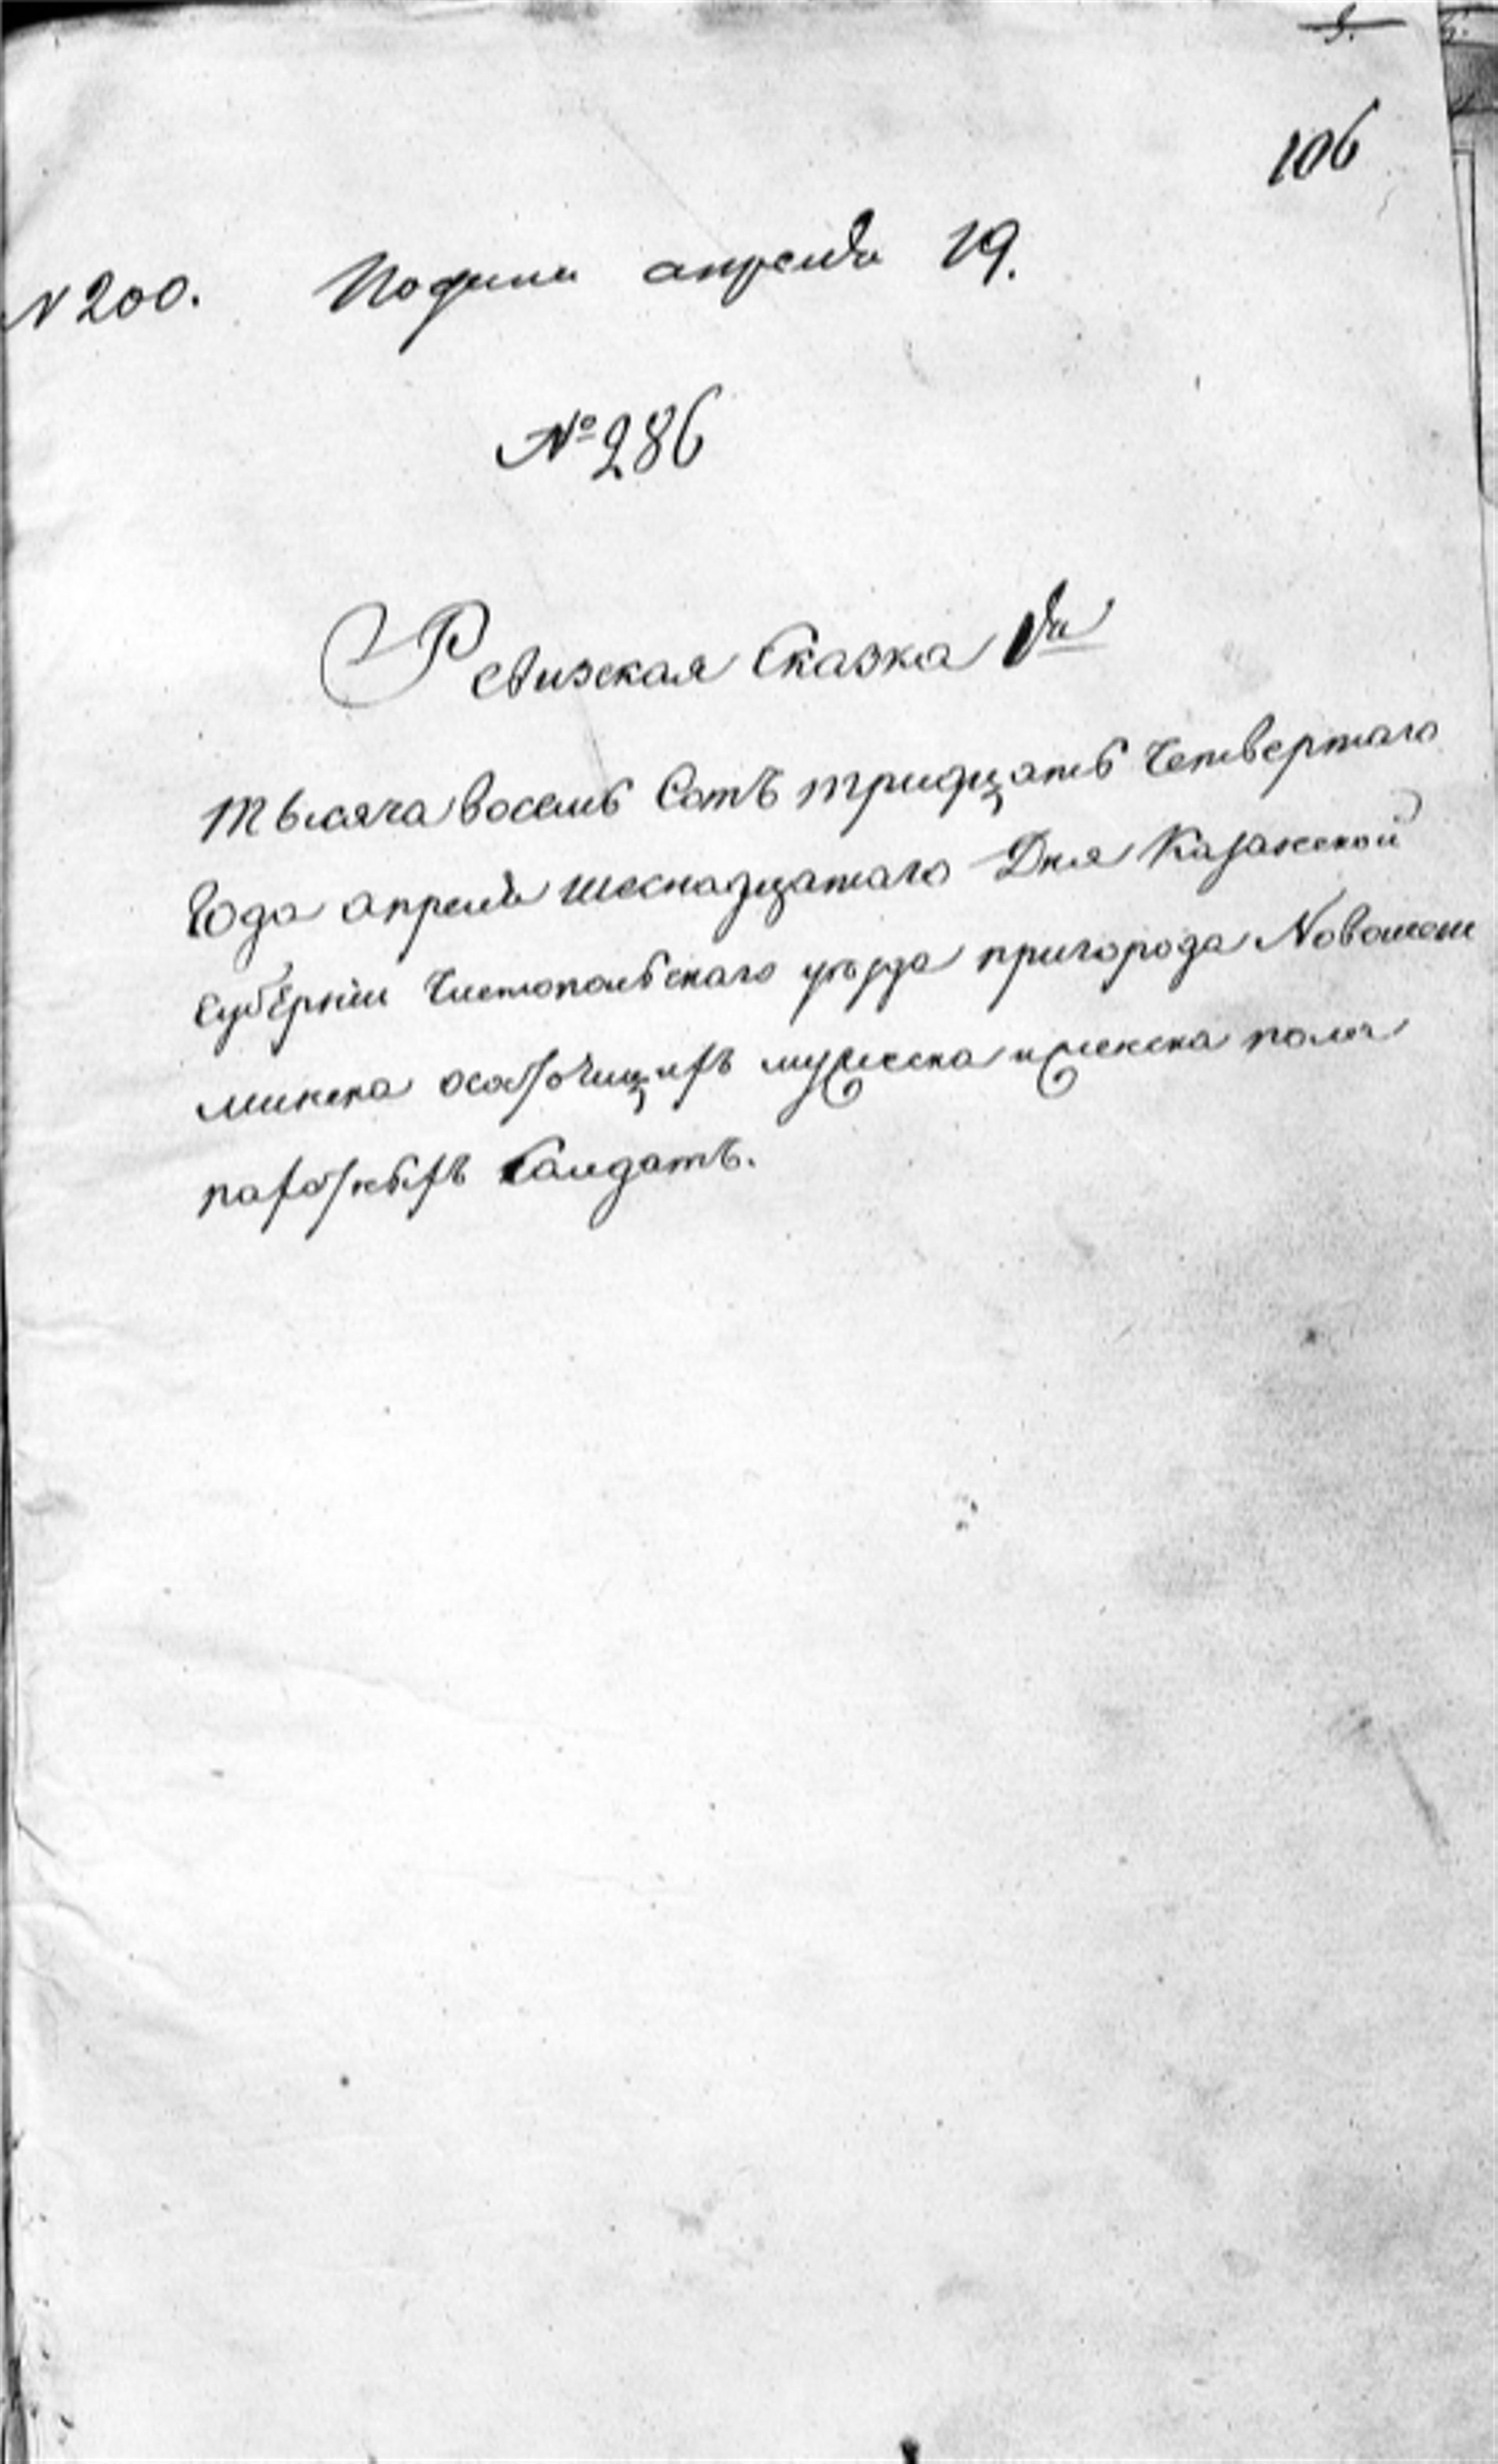 5.
106
N 200. Подана апреля 19.
№ 286
Ревизская Сказка
тысяча восемь Сотъ тридцать четвертаго
Года апреля шеснадцатаго Дня Казанской
губернiи Чистопольскаго уѣзда пригорода Новошеш
минска о мужеска и женска пола
Салдатъ.